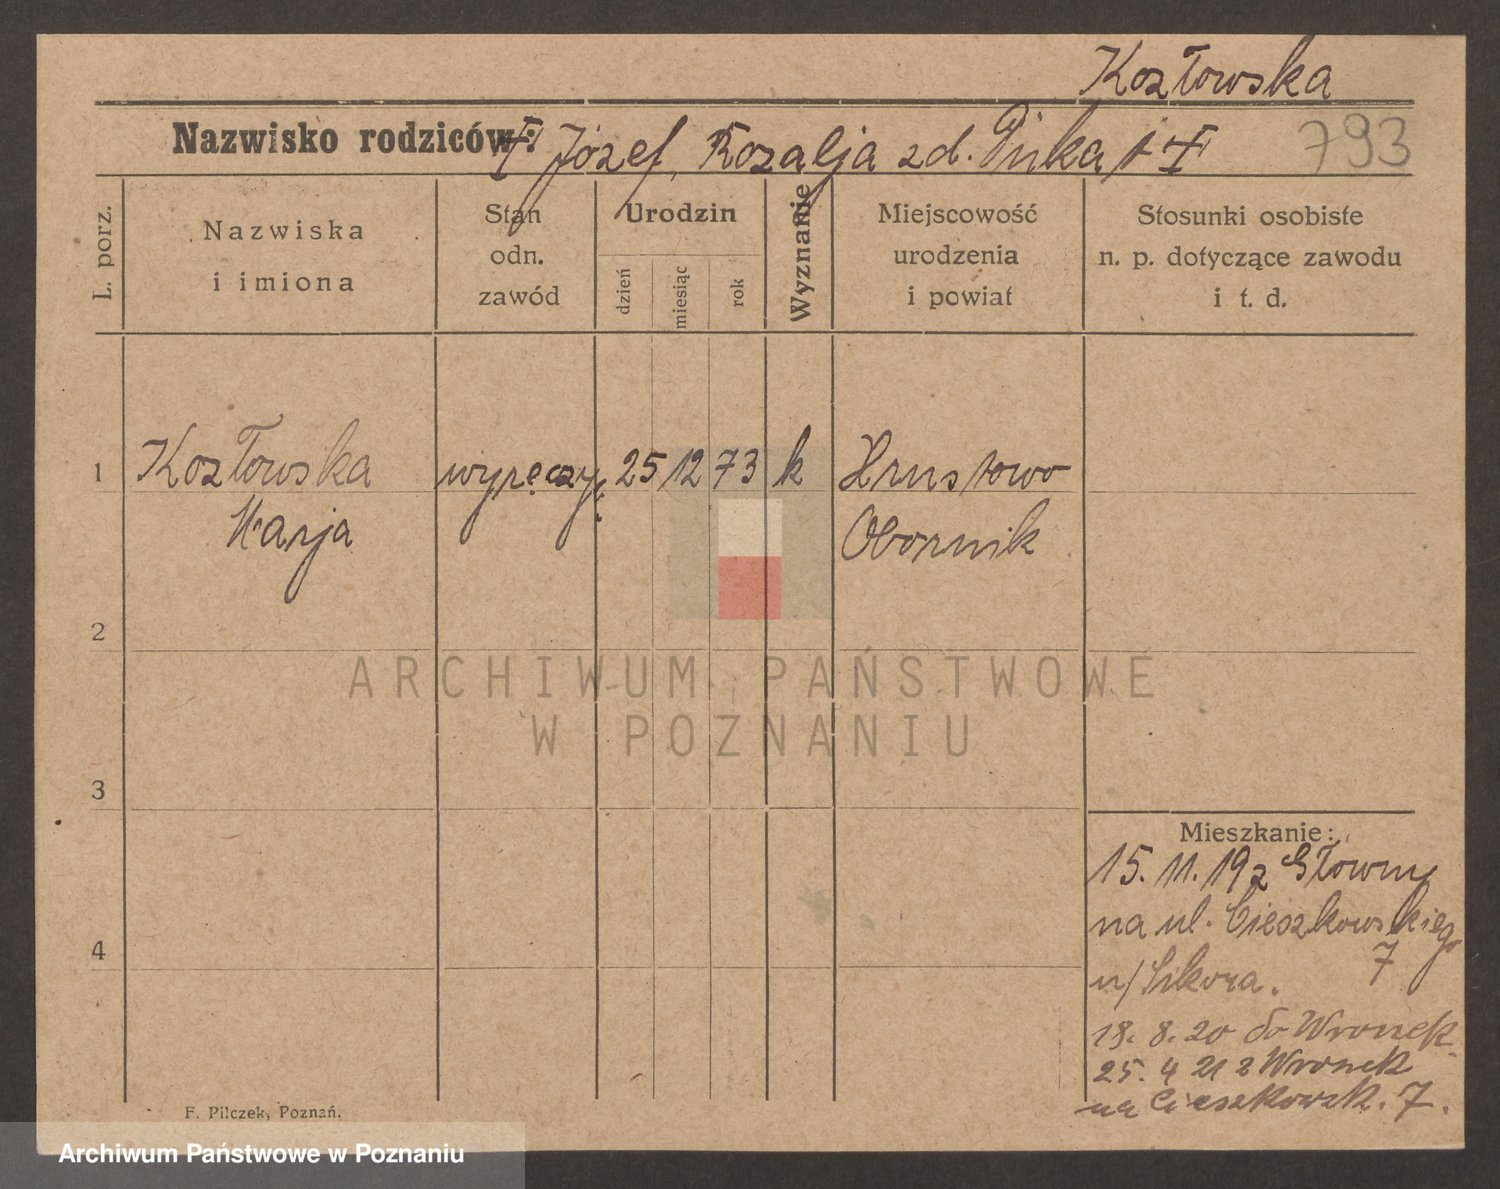 Kozłowska
Nazwisko rodziców: Józef, Rozalja zd. Pinka
793
L. porz.
Nazwiska
i imiona
Stan
odn.
zawód
Urodzin
dzień
miesiąc
rok
Wyznanie
Miejscowość
urodzenia
i powiat
Stosunki osobiste
n. p. dotyczące zawodu
i t. d.
1 Kozłowska wyręczy. 25 12 73 k Hrustowo
Marja Obornik
2
3
4
Mieszkanie:
15. 11. 19 z Główny
na ul. Cieszkowskiego
7
u/ Sikora.
18. 8. 20 do Wronek
25. 4 21 z Wronek
na Cieszkowsk. 7.
F. Pilczek, Poznań.
ARCHIWUM PAŃSTWOWE
W POZNANIU
Archiwum Państwowe w Poznaniu